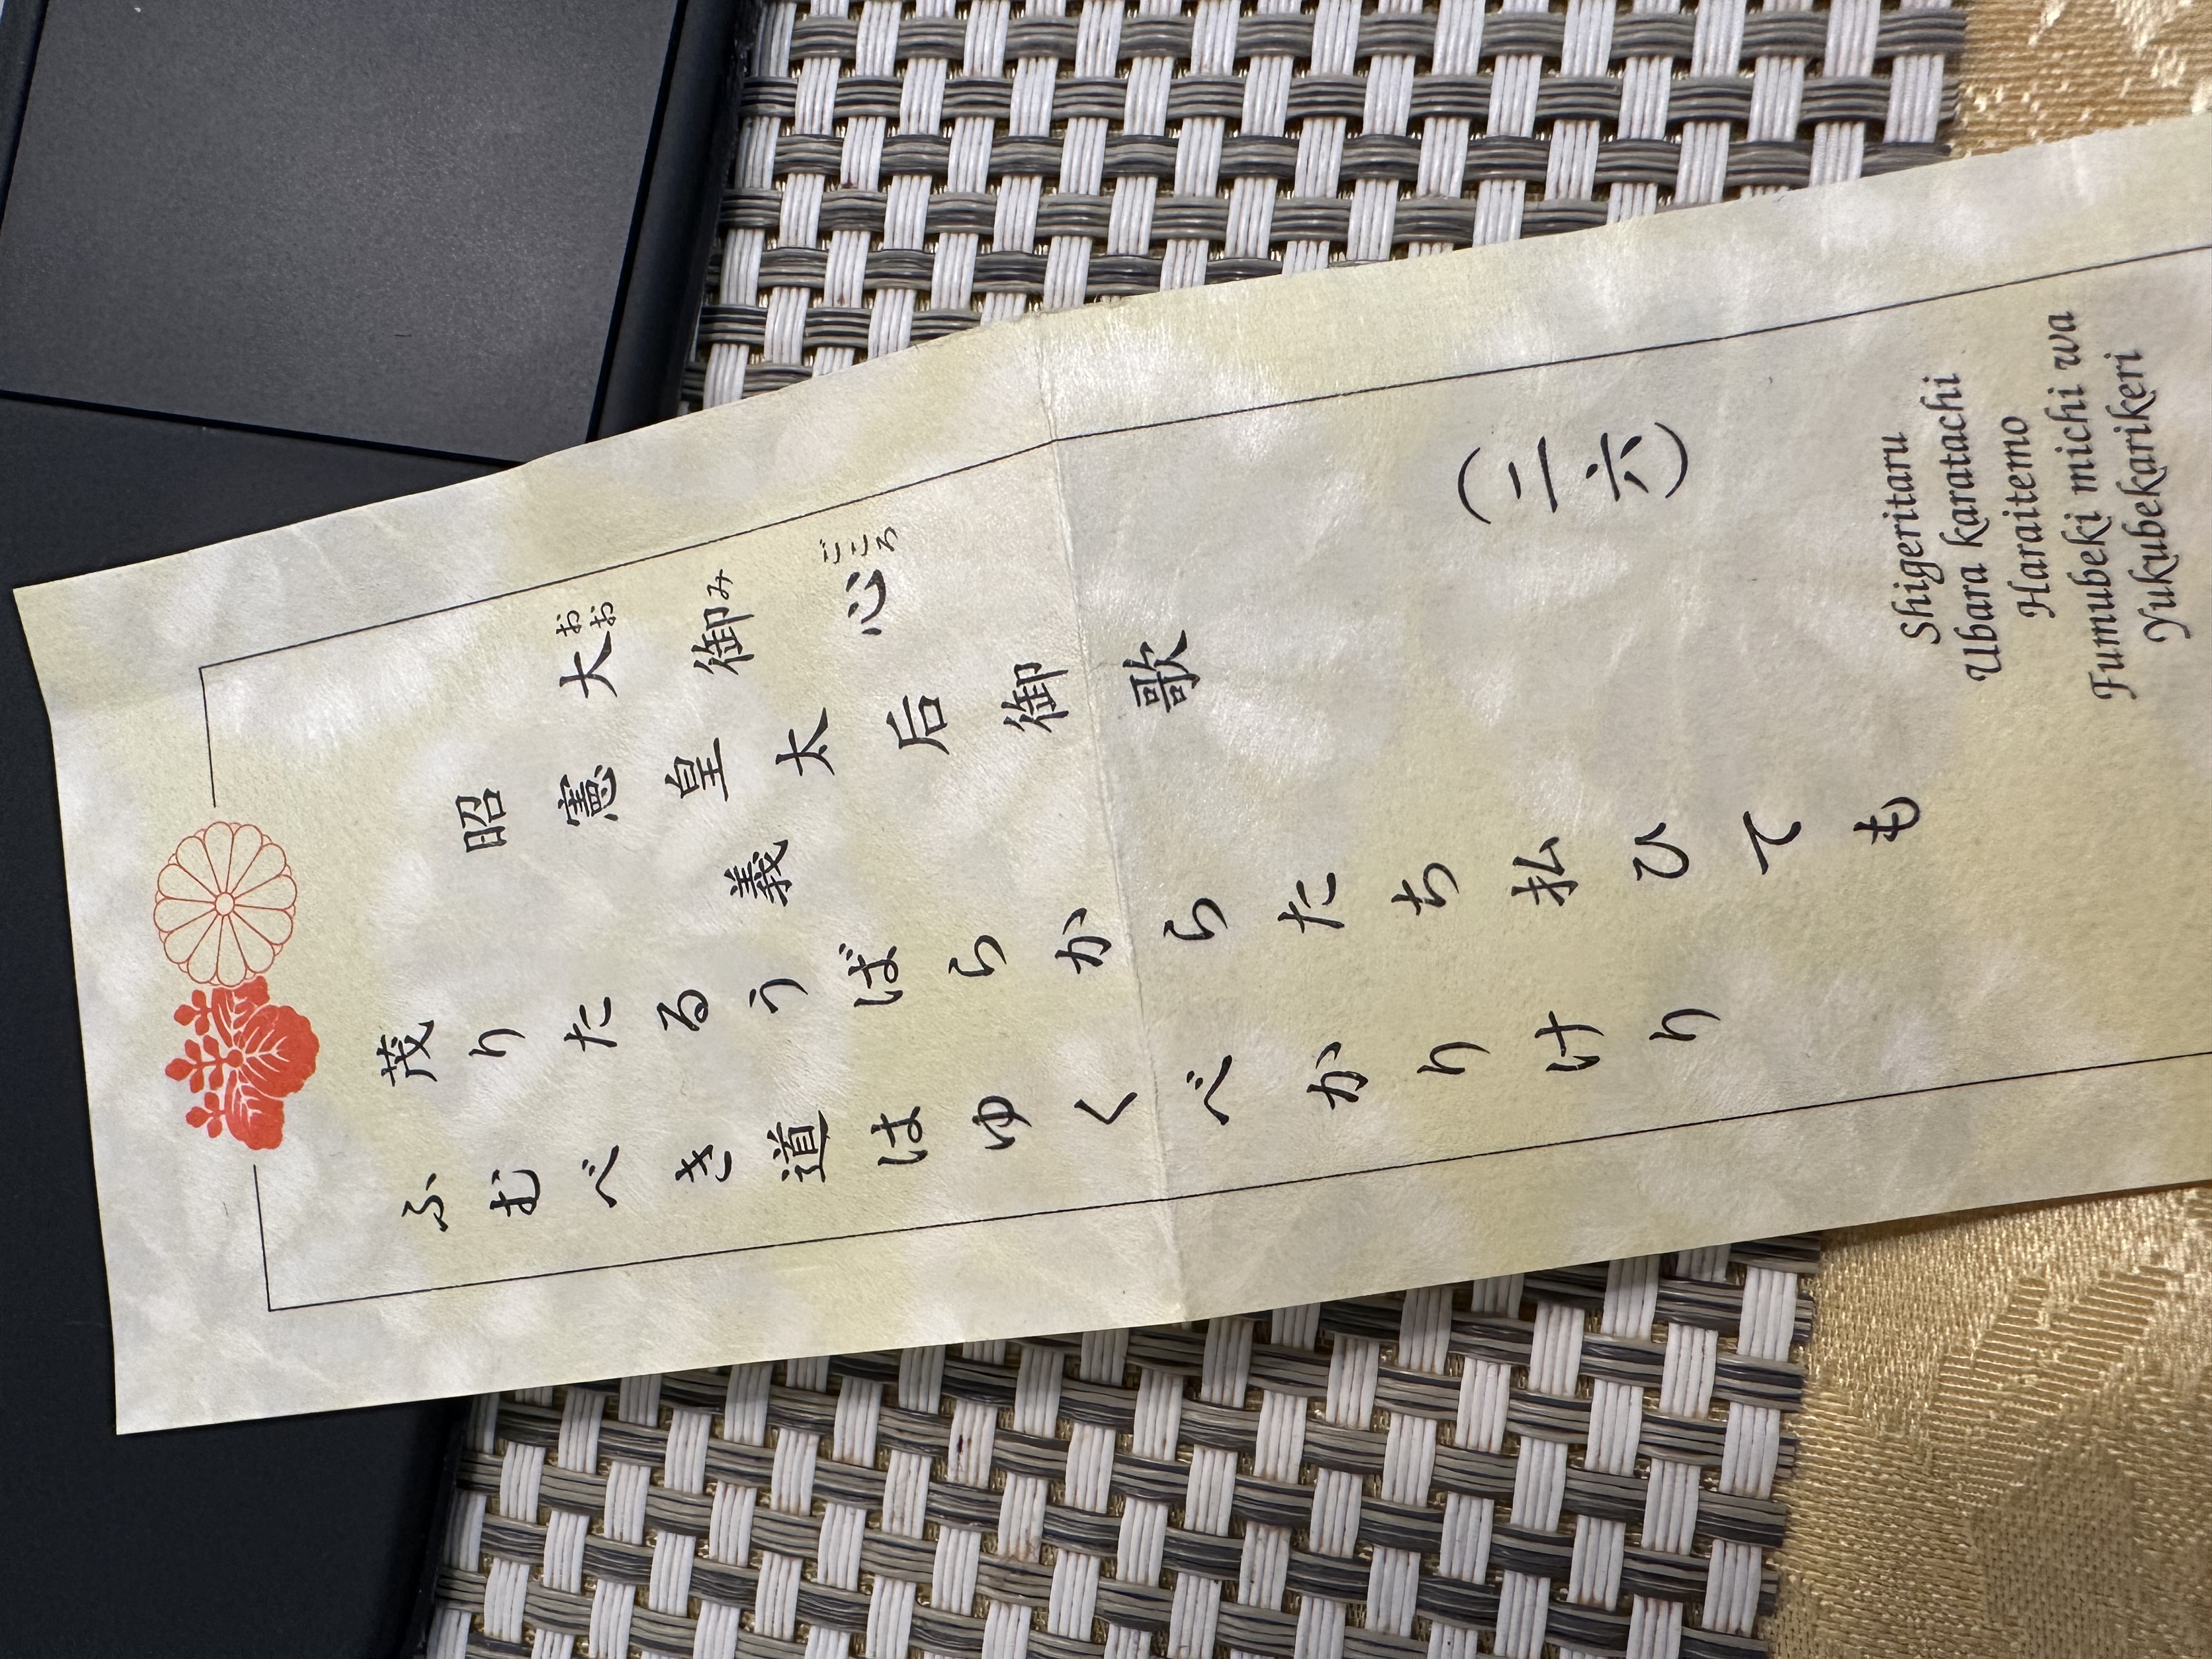 大御心
おおみごころ
（二六）
昭憲皇太后御歌
義
茂りたるうばらからたち払ひても
ふむべき道はゆくべかりけり
Shigeritaru
Ubara karatachi
Haraitemo
Fumubeki michi wa
Yukubekarikeri